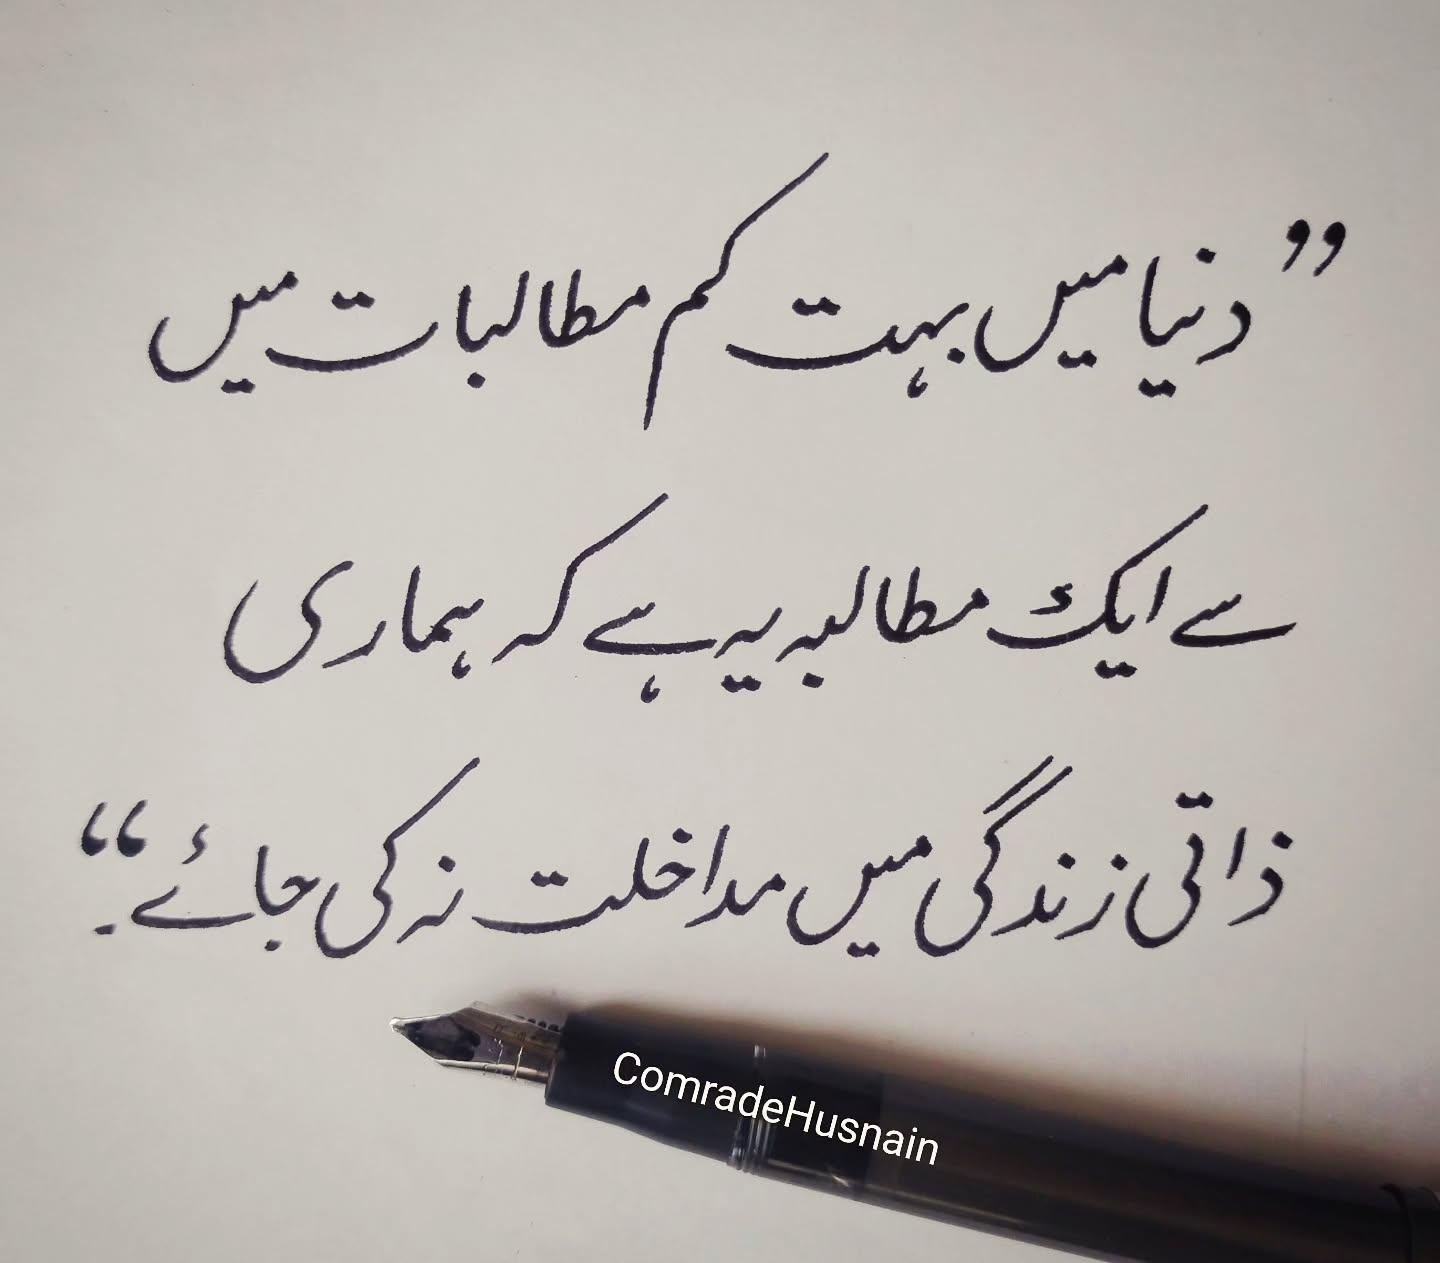 ”دنیا میں بہت کم مطالبات میں
سے ایک مطالبہ یہ ہے کہ ہماری
ذاتی زندگی میں مداخلت نہ کی جائے۔“
ComradeHusnain